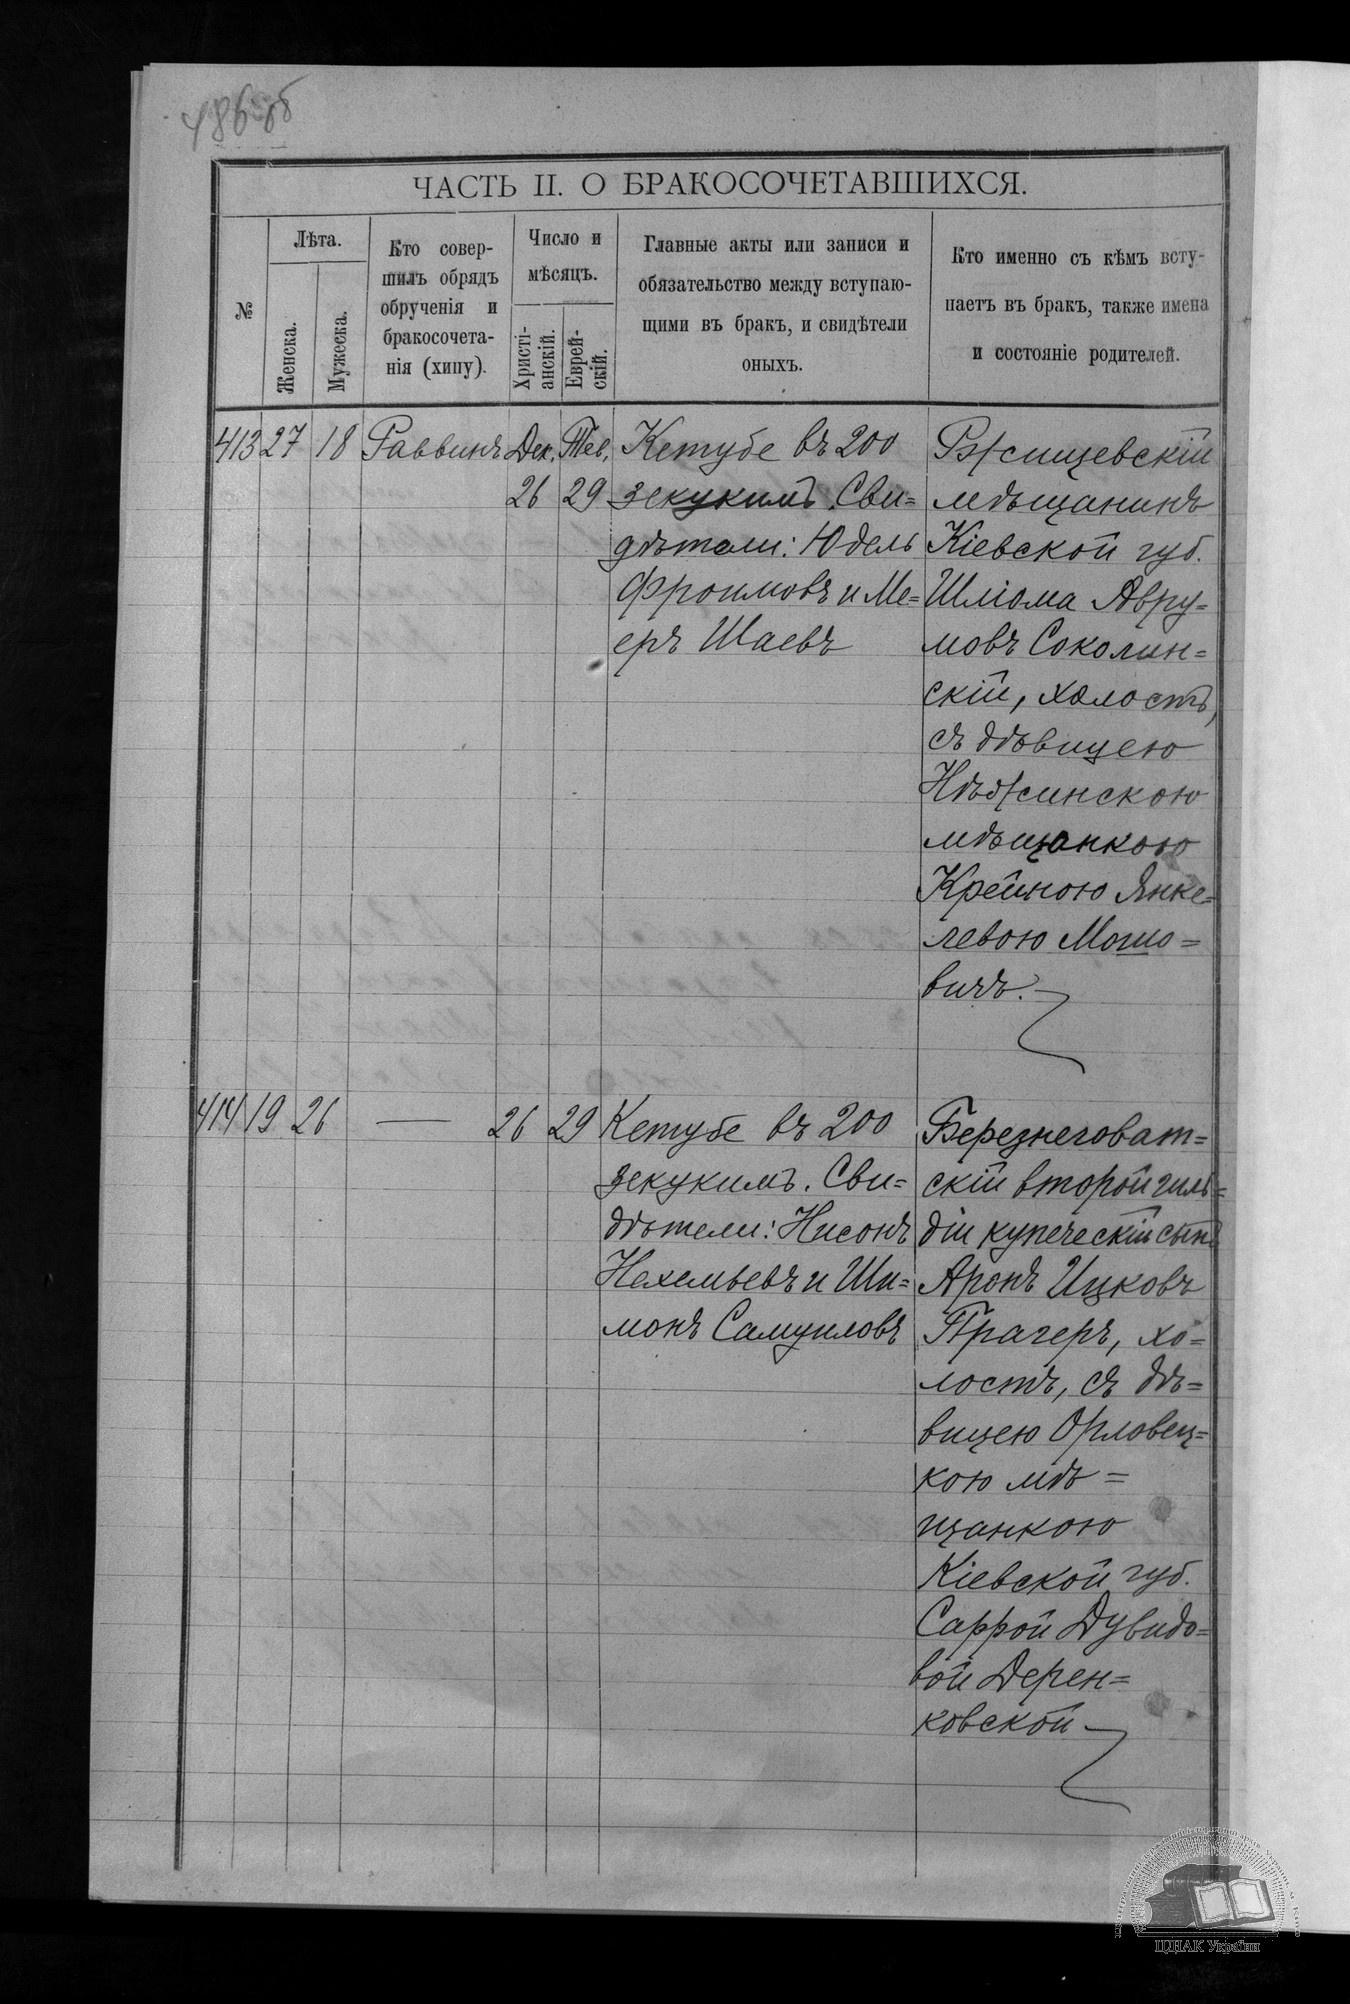 486 об
ЧАСТЬ II. О БРАКОСОЧЕТАВШИХСЯ.
№
Лѣта.
Женска.
Мужеска.
Кто совер-
шилъ обрядъ
обрученія и
бракосочета-
нія (хипу).
Число и
мѣсяцъ.
Христі-
анскій.
Еврей-
скій.
Главные акты или записи и
обязательство между вступаю-
щими въ бракъ, и свидѣтели
оныхъ.
Кто именно съ кѣмъ всту-
паетъ въ бракъ, также имена
и состояніе родителей.
413 27 18 Раввинъ Дек. Тев.
26 29
Кетубе въ 200
зекукимъ. Сви=
дѣтели: Юдель
Фроимовъ и Ме=
еръ Шаевъ
Ржищевскій
мѣщанинъ
Кіевской губ.
Шліома Авру=
мовъ Соколин=
скій, холостъ,
съ дѣвицею
Нѣжинскою
мѣщанкою
Крейною Янке=
левою Мошо=
вичъ.
414 19 26 — 26 29
Кетубе въ 200
зекукимъ. Сви=
дѣтели: Нисонъ
Нехемьевъ и Ши=
монъ Самуиловъ
Березнеговат=
скій второй гиль=
діи купеческій сынъ
Аронъ Ицковъ
Прагеръ, хо=
лостъ, съ дѣ=
вицею Орловец=
кою мѣ=
щанкою
Кіевской губ.
Саррой Дувидо=
вой Дерен=
ковской
ЦДІАК України